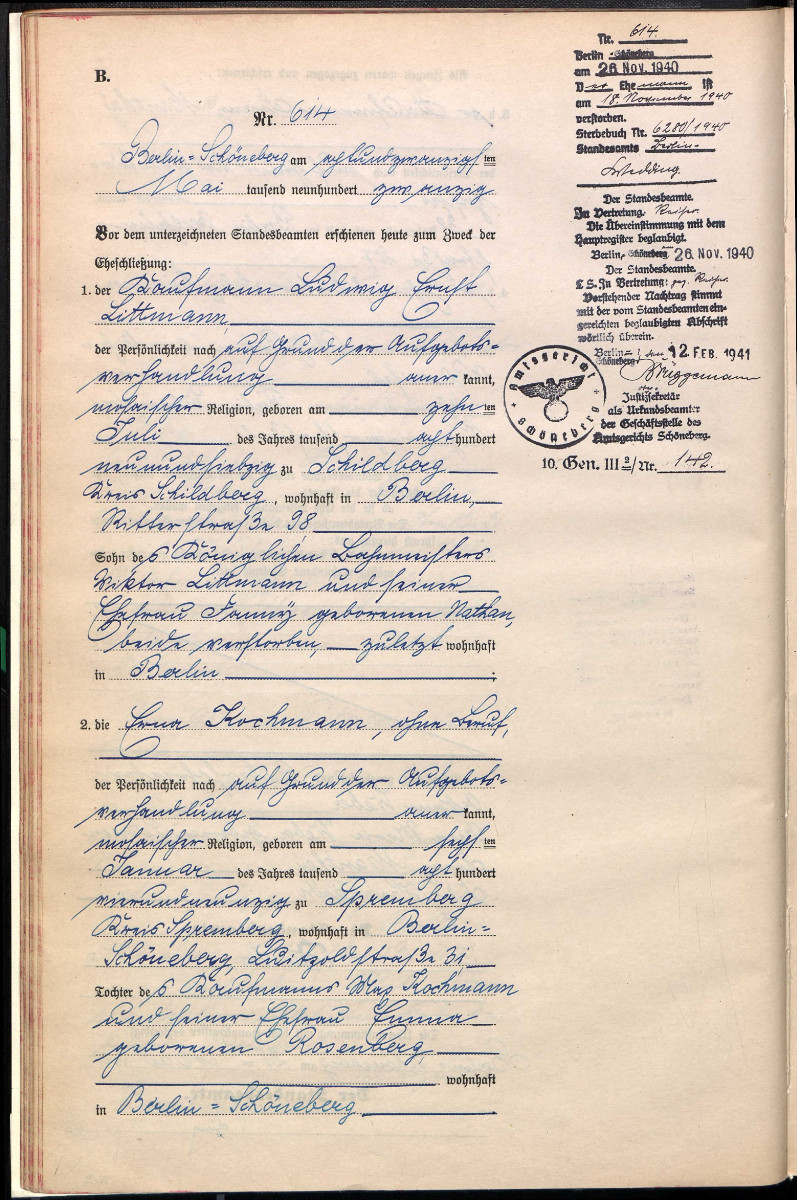 B.
Nr. 614
Berlin-Schöneberg am achtundzwanzigsten
Mai tausend neunhundert zwanzig
Vor dem unterzeichneten Standesbeamten erschienen heute zum Zweck der
Eheschließung:
1. der Kaufmann Ludwig Ernst
Littmann,
der Persönlichkeit nach auf Grund der Aufgebots=
verhandlung aner kannt,
mosaischer Religion, geboren am zehn ten
Juli des Jahres tausend acht hundert
neunundsiebzig zu Schildberg
Kreis Schildberg, wohnhaft in Berlin,
Ritterstraße 98
Sohn des Königlichen Bahnmeisters
Viktor Littmann und seiner
Ehefrau Fanny geborenen Nathan,
beide verstorben, zuletzt wohnhaft
in Berlin ;
2. die Erna Kochmann, ohne Beruf,
der Persönlichkeit nach auf Grund der Aufgebots=
verhandlung aner kannt,
mosaischer Religion, geboren am sechs ten
Januar des Jahres tausend acht hundert
vierundneunzig zu Spremberg
Kreis Spremberg, wohnhaft in Berlin=
Schöneberg, Luitpoldstraße 31
Tochter des Kaufmanns Max Kochmann
und seiner Ehefrau Emma
geborenen Rosenberg,
wohnhaft
in Berlin=Schöneberg
Nr. 614.
Berlin-Schöneberg
am 26 Nov. 1940
Der Ehemann ist
am 18. November 1940
verstorben.
Sterbebuch Nr. 6280/1940
Standesamts Berlin-
Wedding.
Der Standesbeamte.
In Vertretung.
Die Übereinstimmung mit dem
Hauptregister beglaubigt.
Berlin-Schöneberg 26. Nov. 1940
Der Standesbeamte.
L S. In Vertretung: gez.
Vorstehender Nachtrag stimmt
mit der vom Standesbeamten ein-
gereichten beglaubigten Abschrift
wörtlich überein.
Berlin=Schöneberg, den 12. FEB. 1941
Justizsekretär
als Urkundsbeamter
der Geschäftsstelle des
Amtsgerichts Schöneberg.
Amtsgericht Schöneberg
10. Gen. III 2/Nr. 142.